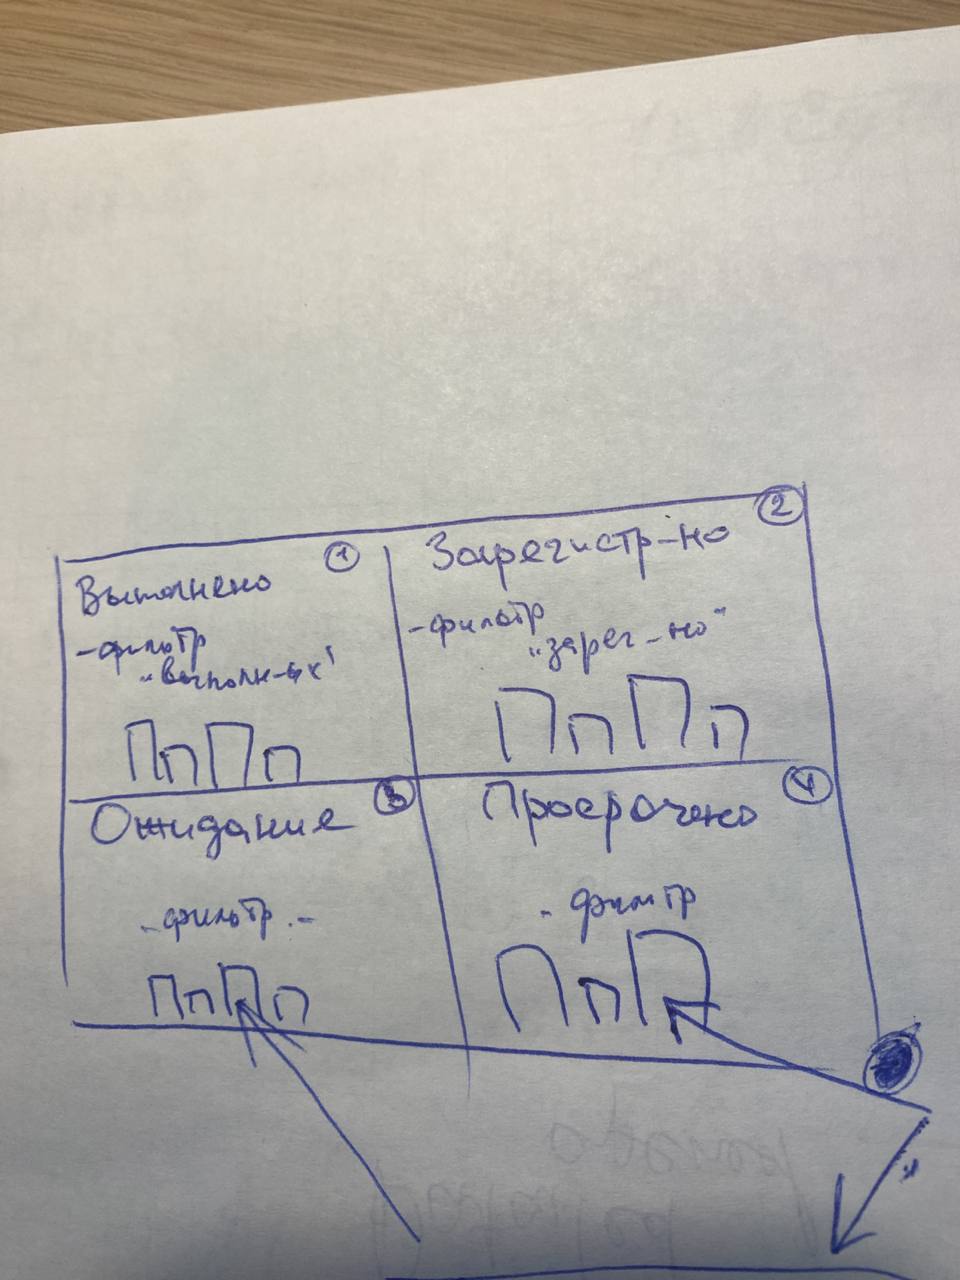 1
Выполнено
-фильтр
„выполн-ых"
2
Зарегистр-но
-фильтр
„зарег-но"
3
Ожидание
-фильтр-
4
Просрочено
- фильтр